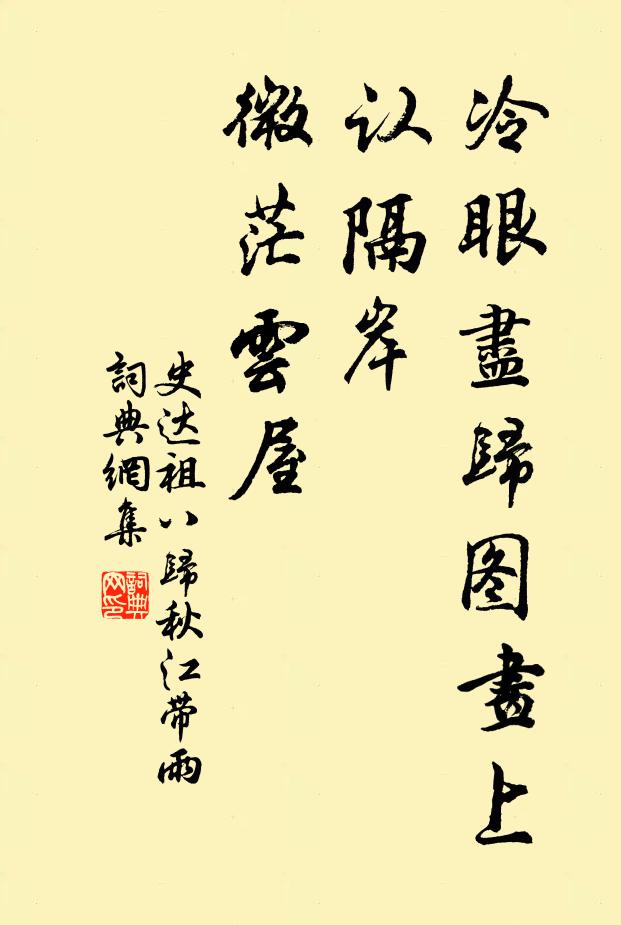 冷眼盡歸图畫上
认隔岸
微茫雲屋
史达祖八歸秋江带雨
詞典網集
詞典网印